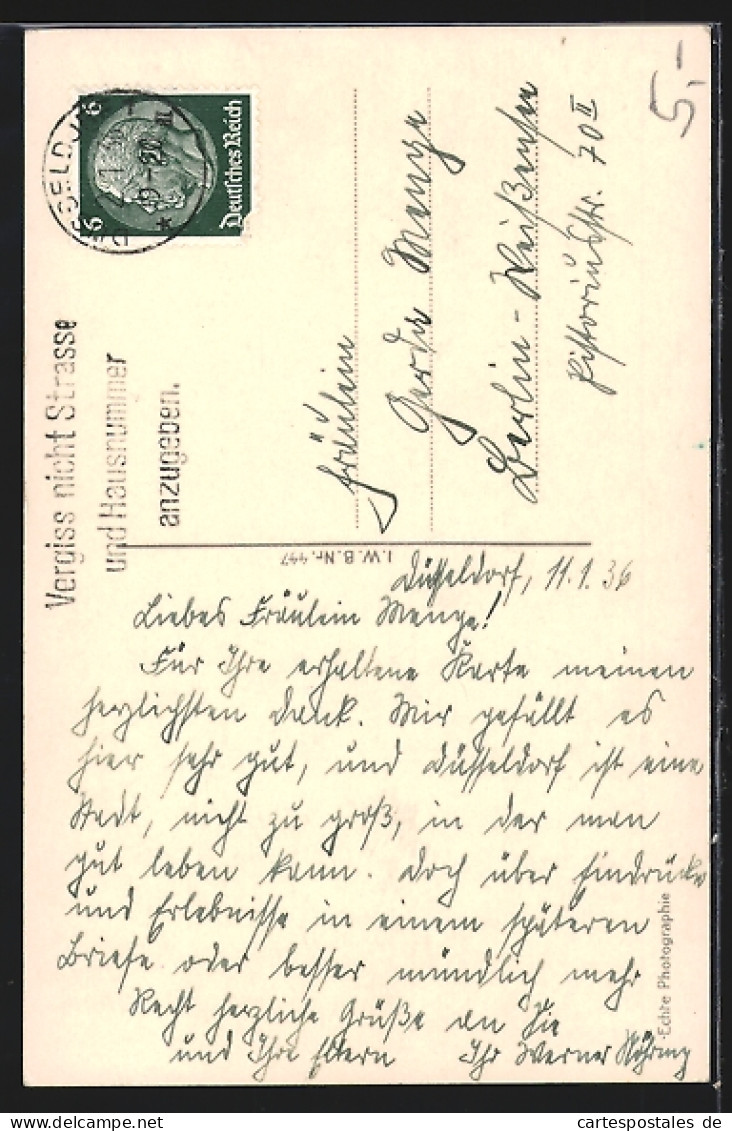 5,-
6
6
Deutsches Reich
Vergiss nicht Strasse
und Hausnummer
anzugeben.
Fräulein
Gerda Menge
Berlin-Weißensee
Pistoriusstr. 70 II
I.W.B.Nr. 997
Düsseldorf, 11.1.36
Liebes Fräulein Menge!
Für Ihre erhaltene Karte meinen
herzlichsten Dank. Mir gefällt es
hier sehr gut, und Düsseldorf ist eine
Stadt, nicht zu groß, in der man
gut leben kann. Doch über Eindrücke
und Erlebnisse in einem späteren
Briefe oder besser mündlich mehr
Recht herzliche Grüße an Sie
und Ihre Eltern Ihr Werner
Echte Photographie
cartespostales de